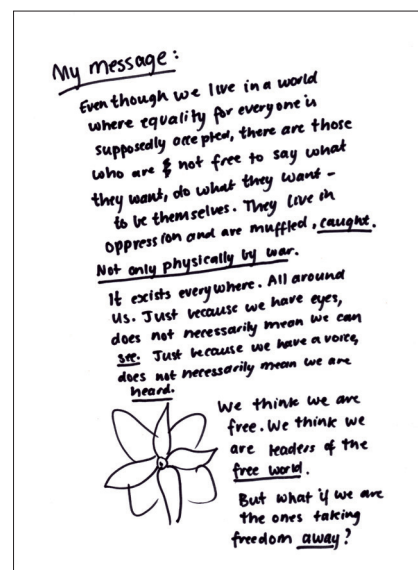 My message:
Even though we live in a world
where equality for everyone is
supposedly accepted, there are those
who are not free to say what
they want, do what they want -
to be themselves. They live in
oppression and are muffled, caught.
Not only physically by war.
It exists everywhere. All around
us. Just because we have eyes,
does not necessarily mean we can
see. Just because we have a voice,
does not necessarily mean we are
heard.
We think we are
free. We think we
are leaders of the
free world.
But what if we are
the ones taking
freedom away?